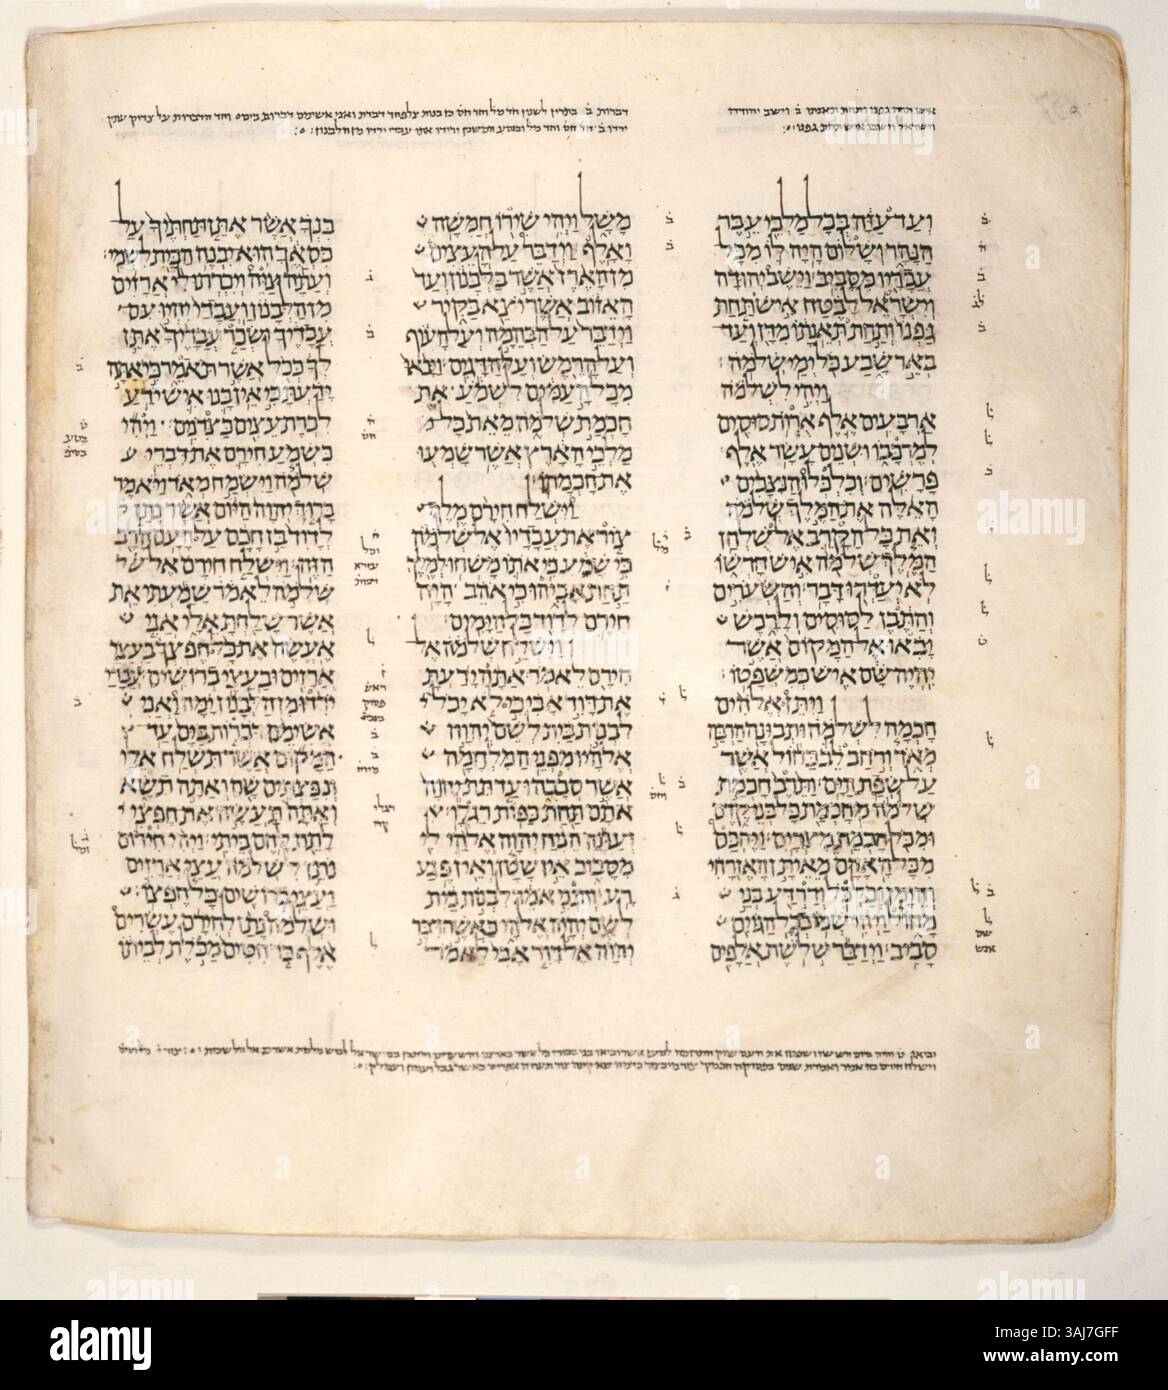 איש תחת גפנו ותחת תאנתו ב וישב יהודה
וישראל וישבו איש תחת גפנו
דברות ב בתרין לשנין חד מל וחד חס כן בנות צלפחד דברת ואני אשימם דברות בים וחד הדברות על צדיק עתק
ועד עזה בכל מלכי עבר
הנהר ושלום היה לו מכל
עבדיו מסביב וישב יהודה
וישראל לבטח איש תחת
גפנו ותחת תאנתו מדן ועד
באר שבע כל ימי שלמה
ויהי לשלמה
ארבעים אלף ארות סוסים
למרכבו ושנים עשר אלף
פרשים וכלכלו הנצבים
האלה את המלך שלמה
ואת כל הקרב אל שלחן
המלך שלמה איש חדשו
לא יעדרו דבר והשערים
והתבן לסוסים ולרכש
יבאו אל המקום אשר
יהיה שם איש כמשפטו
ויתן אלהים
חכמה לשלמה ותבונה הרבה
מאד ורחב לב כחול אשר
על שפת הים ותרב חכמת
שלמה מחכמת כל בני קדם
ומכל חכמת מצרים ויחכם
מכל האדם מאיתן האזרחי
והימן וכלכל ודרדע בני
מחול ויהי שמו בכל הגוים
סביב וידבר שלשת אלפים
משל ויהי שירו חמשה
ואלף וידבר על העצים
מן הארז אשר בלבנון ועד
האזוב אשר יצא בקיר
וידבר על הבהמה ועל העוף
ועל הרמש ועל הדגים ויבאו
מכל העמים לשמע את
חכמת שלמה מאת כל
מלכי הארץ אשר שמעו
את חכמתו
וישלח חירם מלך
צור את עבדיו אל שלמה
כי שמע כי אתו משחו למלך
תחת אביהו כי אהב היה
חירם לדוד כל הימים
וישלח שלמה אל
חירם לאמר אתה ידעת
את דוד אבי כי לא יכל
לבנות בית לשם יהוה
אלהיו מפני המלחמה
אשר סבבהו עד תת יהוה
אתם תחת כפות רגלו
ועתה הניח יהוה אלהי לי
מסביב אין שטן ואין פגע
רע והנני אמר לבנות בית
לשם יהוה אלהי כאשר דבר
יהוה אל דוד אבי לאמר
בנך אשר אתן תחתיך על
כסאך הוא יבנה הבית לשמי
ועתה צוה ויכרתו לי ארזים
מן הלבנון ועבדי יהיו עם
עבדיך ושכר עבדיך אתן
לך ככל אשר תאמר כי אתה
ידעת כי אין בנו איש ידע
לכרת עצים כצדנים ויהי
כשמע חירם את דברי
שלמה וישמח מאד ויאמר
ברוך יהוה היום אשר נתן
לדוד בן חכם על העם הרב
הזה וישלח חירם אל
שלמה לאמר שמעתי את
אשר שלחת אלי אני
אעשה את כל חפצך בעצי
ארזים ובעצי ברושים עבדי
ירדו מן הלבנון ימה ואני
אשימם דברות בים עד
המקום אשר תשלח אלי
ונפצתים שם ואתה תשא
ואתה תעשה את חפצי
לתת לחם ביתי ויהי חירום
נתן לשלמה עצי ארזים
ועצי ברושים כל חפצו
ושלמה נתן לחירם עשרים
אלף כר חטים מכלת לביתו
alamy
alamy
Image ID: 3AJ7GFF
www.alamy.com